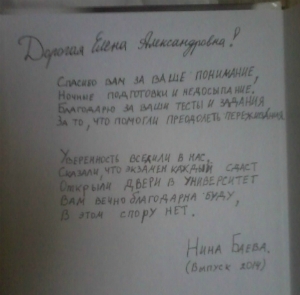 Дорогая Елена Александровна!
Спасибо вам за ваше понимание,
Ночные подготовки и недосыпание.
Благодарю за ваши тесты и задания
За то, что помогли преодолеть переживания
Уверенность вселили в нас.
Сказали, что экзамен каждый сдаст
Открыли двери в университет
Вам вечно благодарна буду,
В этом спору нет.
Нина Баева.
(Выпуск 2014)